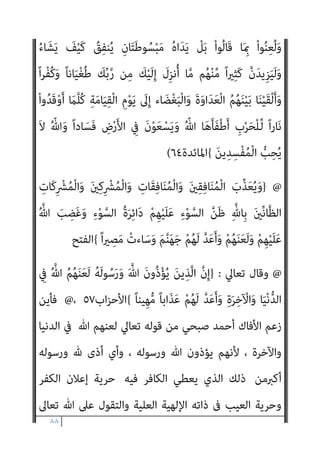 وَلُعِنُواْ بِمَا قَالُواْ بَلْ يَدَاهُ مَبْسُوطَتَانِ يُنفِقُ كَيْفَ يَشَاءُ
وَلَيَزِيدَنَّ كَثِيراً مِّنْهُم مَّا أُنزِلَ إِلَيْكَ مِن رَّبِّكَ طُغْيَاناً وَكُفْراً
وَأَلْقَيْنَا بَيْنَهُمُ الْعَدَاوَةَ وَالْبَغْضَاء إِلَى يَوْمِ الْقِيَامَةِ كُلَّمَا أَوْقَدُواْ
نَاراً لِّلْحَرْبِ أَطْفَأَهَا اللهُ وَيَسْعَوْنَ فِي الأَرْضِ فَسَاداً وَاللهُ لاَ
يُحِبُّ الْمُفْسِدِينَ {المائدة٦٤}
@ {وَيُعَذِّبَ الْمُنَافِقِينَ وَالْمُنَافِقَاتِ وَالْمُشْرِكِينَ وَالْمُشْرِكَاتِ
الظَّانِّينَ بِاللَّهِ ظَنَّ السَّوْءِ عَلَيْهِمْ دَائِرَةُ السَّوْءِ وَغَضِبَ اللَّهُ
عَلَيْهِمْ وَلَعَنَهُمْ وَأَعَدَّ لَهُمْ جَهَنَّمَ وَسَاءتْ مَصِيراً {الفتح
@ وقال تعالي : {إِنَّ الَّذِينَ يُؤْذُونَ اللَّهَ وَرَسُولَهُ لَعَنَهُمُ اللَّهُ فِي
الدُّنْيَا وَالْآخِرَةِ وَأَعَدَّ لَهُمْ عَذَاباً مُّهِيناً {الأحزاب٥٧ @، فأين
زعم الأفاك أحمد صبحي من قوله تعالي لعنهم الله في الدنيا
والآخرة ، لأنهم يؤذون الله ورسوله ، وأي أذى لله ورسوله
أكبرمن ذلك الذي يعطي الكافر فيه حرية إعلان الكفر
وحرية العيب فى ذاته الإلهية العلية والتقول على الله تعالى
٨٨